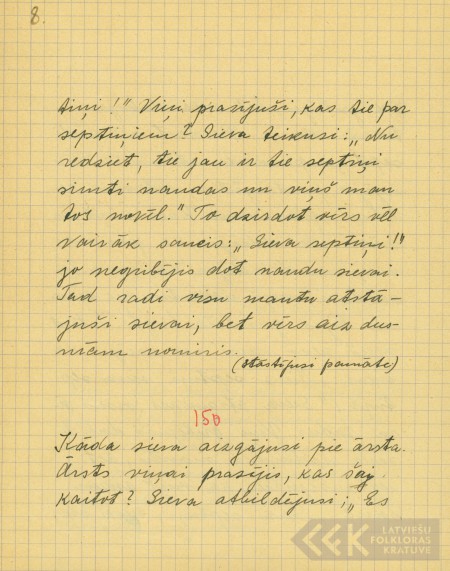 8.
tiņi!" Viņi prasījuši, kas tie par
septiņiem? Sieva teikusi: „Nu
redziet, tie jau ir tie septiņi
simti naudas un viņš man
tos novēl." To dzirdot vīrs vēl
vairāk saucis: „Sieva septiņi!"
jo negribējis dot naudu sievai.
Tad radi visu mantu atstā-
juši sievai, bet vīrs aiz dus-
mām nomiris.
(stāstījusi pamāte)
150
Kāda sieva aizgājusi pie ārsta.
Ārsts viņai prasījis, kas šai
kaitot? Sieva atbildējusi; „Es
LATVIEŠU
FOLKLORAS
KRĀTUVE